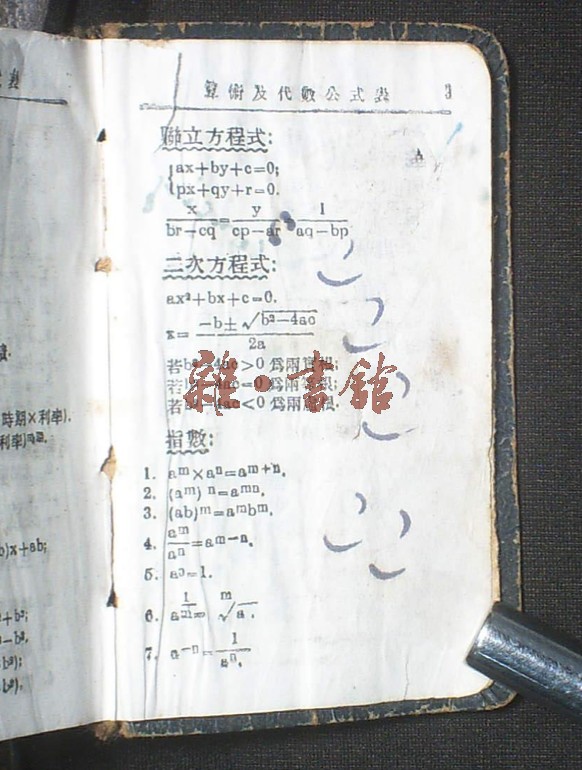 算術及代數公式表 3
聯立方程式:
{ax+by+c=0;
px+qy+r=0.
x/(br-cq)=y/(cp-ar)=1/(aq-bp)
二次方程式:
ax²+bx+c=0.
x=(-b±√(b²-4ac))/2a
若b²-4ac>0爲兩實根;
若b²-4ac=0爲兩等根;
若b²-4ac<0爲兩虛根.
指數:
1. aᵐ×aⁿ=aᵐ⁺ⁿ.
2. (aᵐ)ⁿ=aᵐⁿ.
3. (ab)ᵐ=aᵐbᵐ.
4. aᵐ/aⁿ=aᵐ⁻ⁿ.
5. a⁰=1.
6. a^(1/m)=ᵐ√a.
7. a⁻ⁿ=1/aⁿ.
時期×利率).
利率)
)x+ab;
+b²;
-b²,
b²);
b²),
雜·書館